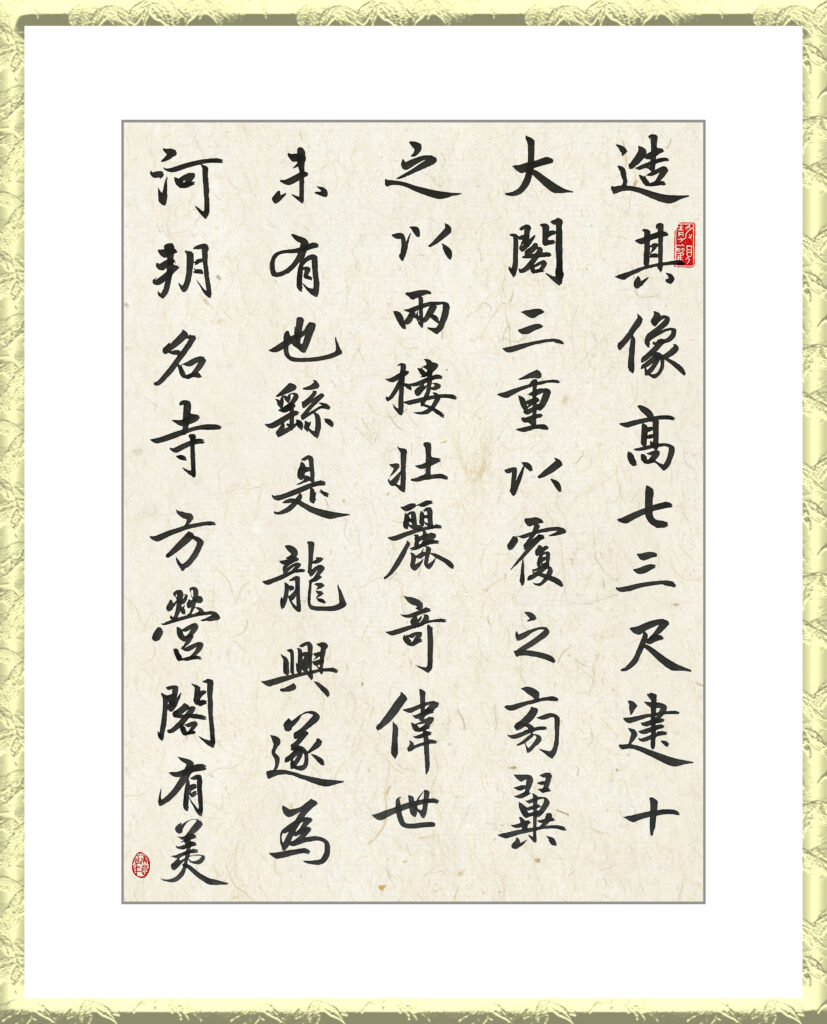 造其像高七三尺建十
大閣三重以覆之旁翼
之以兩樓壯麗奇偉世
未有也繇是龍興遂為
河朔名寺方營閣有美